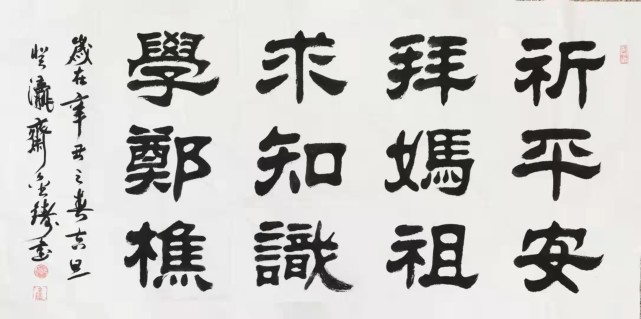 祈平安
拜媽祖
求知識
學鄭樵
歲在辛丑之春吉旦